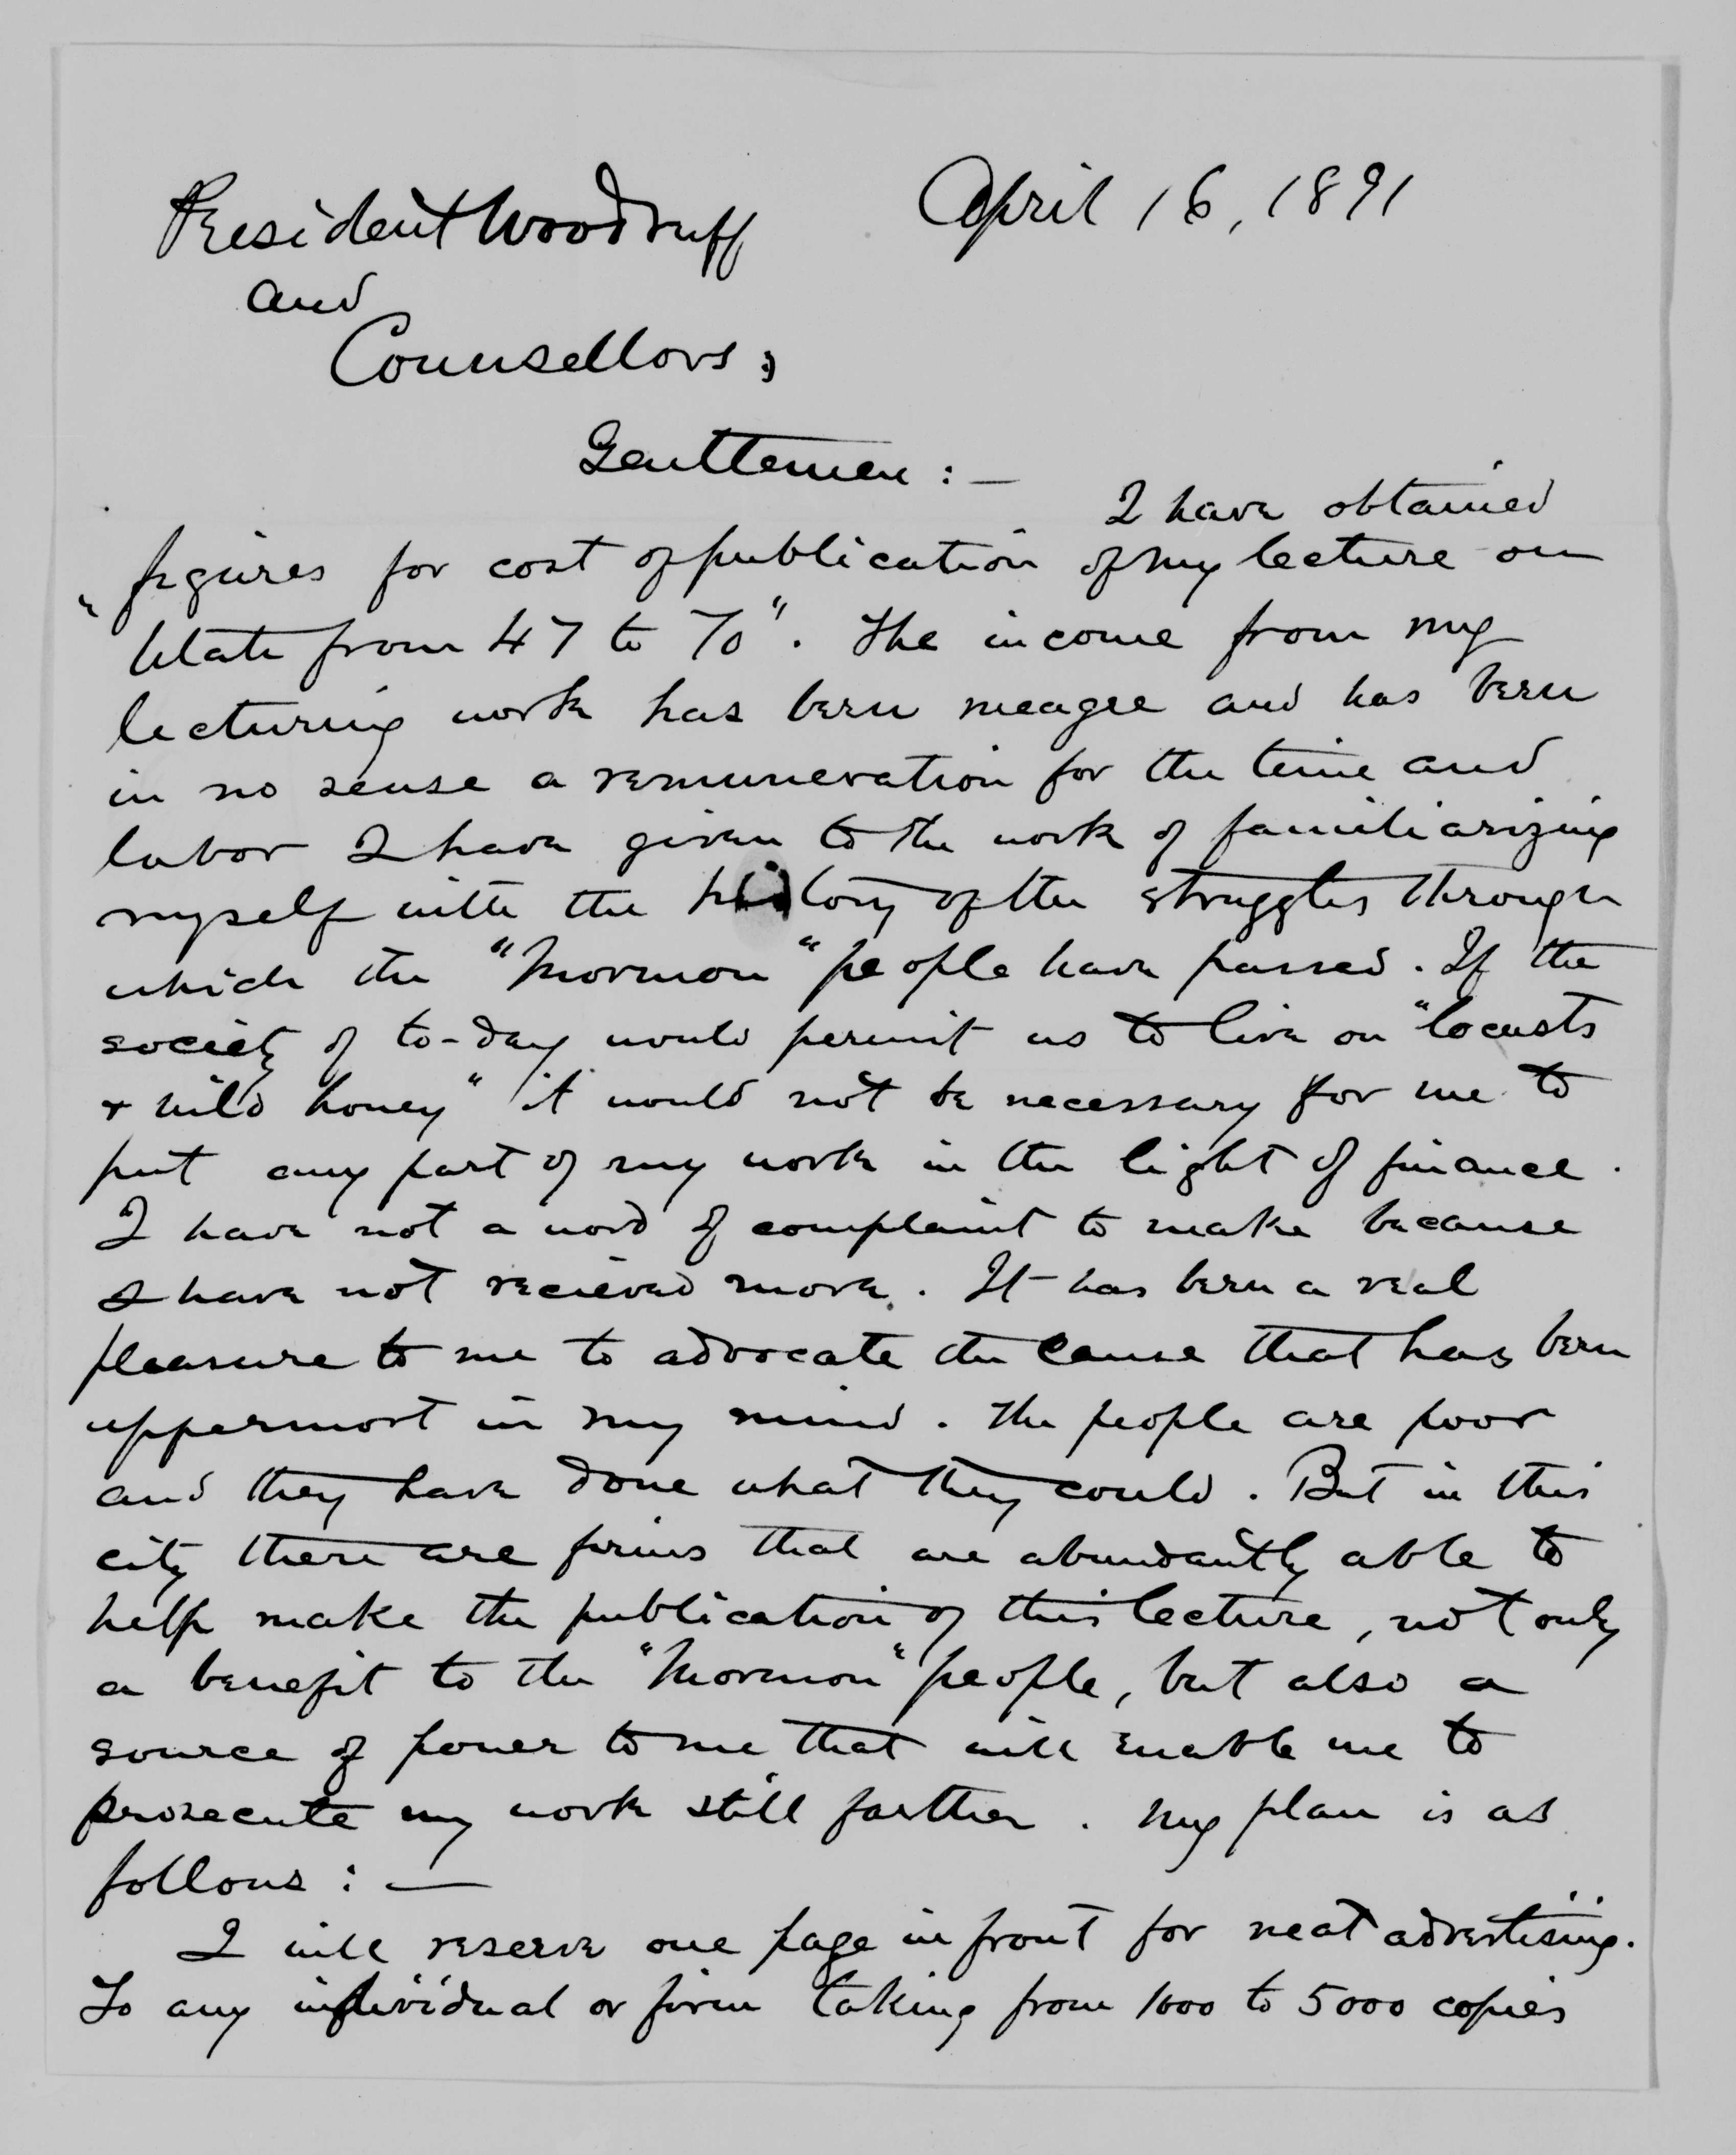 President Woodruff
April 16, 1891
and
Counsellors;
Gentlemen : —
I have obtained
figures for cost of publication of my lecture on
"Utah from 47 to 70". The income from my
lecturing work has been meagre and has been
in no sense a remuneration for the time and
labor I have given to the work of familiarizing
myself with the history of the struggles through
which the "Mormon" people have passed. If the
society of to-day would permit us to live on "locusts
+ wild honey" it would not be necessary for me to
put any part of my work in the light of finance.
I have not a word of complaint to make because
I have not recieved more. It has been a real
pleasure to me to advocate the cause that has been
uppermost in my mind. The people are poor
and they have done what they could. But in this
city there are firms that are abundantly able to
help make the publication of this lecture, not only
a benefit to the "Mormon" people, but also a
source of power to me that will enable me to
prosecute my work still farther. My plan is as
follows : —
I will reserve one page in front for neat advertising.
To any individual or firm taking from 1000 to 5000 copies